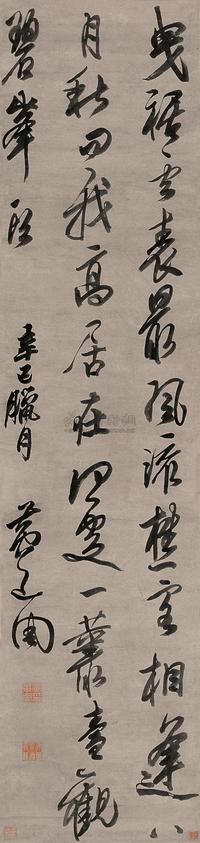 曳裾雲表最風流樵客相逢八
月秋問我高居在何處一叢臺觀
碧峯頭 辛巳臘月 黃道周